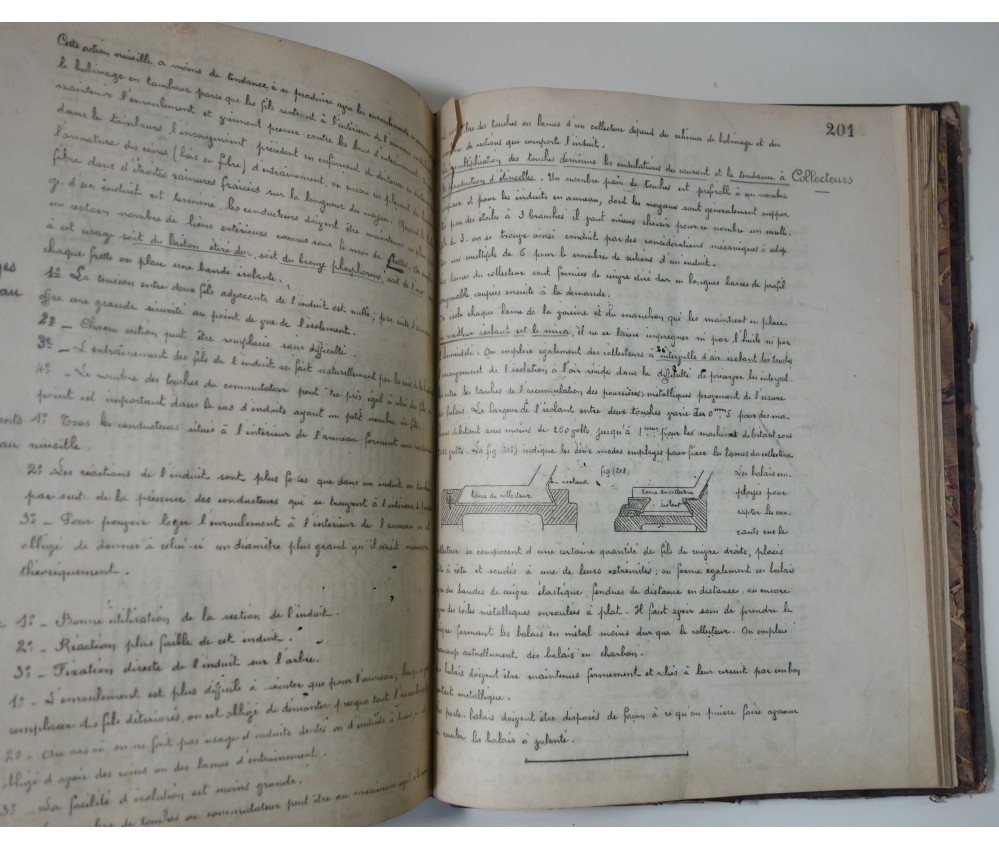 Cette action nuisible a moins de tendance à se produire avec les enroulements
le bobinage en tambour parce que les fils rentrent à l'intérieur de l'anneau
maintenir l'enroulement et viennent presser contre les bras d'entraînement
dans les tambours l'inconvénient précédent en enfonçant de distance en distance
l'armature des coins (bois ou fibre) d'entraînement, ou encore en plaçant
fibre dans d'étroites rainures fraisées sur la longueur du noyau. Quand le
ge d'un induit est terminé les conducteurs doivent être maintenus en place
un certain nombre de liens extérieurs connus sous le nom de frettes. On
à cet usage soit du laiton étiré dur, soit du bronze phosphoreux, soit de l'acier
chaque frette on place une bande isolante.
ges
au
1º La tension entre deux fils adjacents de l'induit est nulle; par suite
offre une grande sécurité au point de vue de l'isolement.
2º _ Chaque section peut être remplacée sans difficulté.
3º _ L'entraînement des fils de l'induit se fait naturellement par
4º _ Le nombre des touches du commutateur peut être pris égal à celui des fils,
point est important dans le cas d'induits ayant un petit nombre de fils.
ents 1º Tous les conducteurs situés à l'intérieur de l'anneau forment une résistance
au nuisible.
2º Les réactions de l'induit sont plus fortes que dans un induit en tambour
par suite de la présence des conducteurs qui se trouvent à l'intérieur de l'anneau
3º _ Pour pouvoir loger l'enroulement à l'intérieur de l'anneau on est
obligé de donner à celui-ci un diamètre plus grand qu'il serait nécessaire
théoriquement.
1º _ Bonne utilisation de la section de l'induit.
2º _ Réaction plus faible de cet induit.
3º _ Fixation directe de l'induit sur l'arbre.
1º _ L'enroulement est plus difficile à exécuter que pour l'anneau,
remplacer des fils détériorés, on est obligé de démonter presque tout l'enroulement
2º _ Au cas où on ne fait pas usage d'induits dentés ou d'induits à
obligé d'avoir des coins ou des lames d'entraînement.
3º _ La facilité d'isolation est moins grande.
de touches au commutateur peut être au maximum égal
201
Collecteurs
bre des touches ou lames d'un collecteur dépend du schéma de bobinage et du
de sections que comporte l'induit.
multiplication des touches diminue les ondulations du courant et la tendance à
production d'étincelles. Un nombre pair de touches est préférable à un nombre
impair et pour les induits en anneau, dont les noyaux sont généralement suppor
par des étoiles à 3 branches, il vaut mieux choisir pour ce nombre un multi.
ple de 3. on se trouve ainsi conduit par des considérations mécaniques à adop
un multiple de 6 pour le nombre de sections d'un induit.
lames du collecteur sont formées de cuivre étiré dur en longues barres de profil
convenable coupées ensuite à la demande.
isole chaque lame de la voisine et du manchon qui les maintient en place.
meilleur isolant est le mica; il ne se laisse imprégner ni par l'huile ni par
l'humidité. On emploie également des collecteurs à intervalle d'air isolant les touches
l'inconvénient de l'isolation à l'air réside dans la difficulté de préserver les interval.
entre les touches de l'accumulation des poussières métalliques provenant de l'usure
balais. La largeur de l'isolant entre deux touches varie de 0mm5 pour des ma.
débitant sous moins de 250 volts jusqu'à 1mm pour les machines débitant sous
volts. La fig (218) indique les deux modes employés pour fixer les lames du collecteur.
fig (218)
isolant
lame du collecteur
lame du collecteur
isolant
Les balais em-
ployés pour
capter les cou-
rants sur le
collecteur se composent d'une certaine quantité de fils de cuivre droits, placés
à côte et soudés à une de leurs extrémités; on forme également ces balais
des bandes de cuivre élastique, fendues de distance en distance, ou encore
des toiles métalliques enroulées à plat. Il faut avoir soin de prendre le
cuivre formant les balais en métal moins dur que le collecteur. On emploie
beaucoup actuellement des balais en charbon.
balais doivent être maintenus fermement et reliés à leur circuit par un bon
contact métallique.
porte-balais doivent être disposés de façon à ce qu'on puisse faire avancer
reculer les balais à volonté.